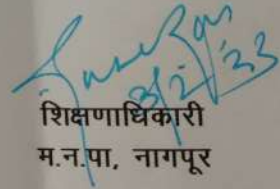 शिक्षणाधिकारी
म.न.पा. नागपूर